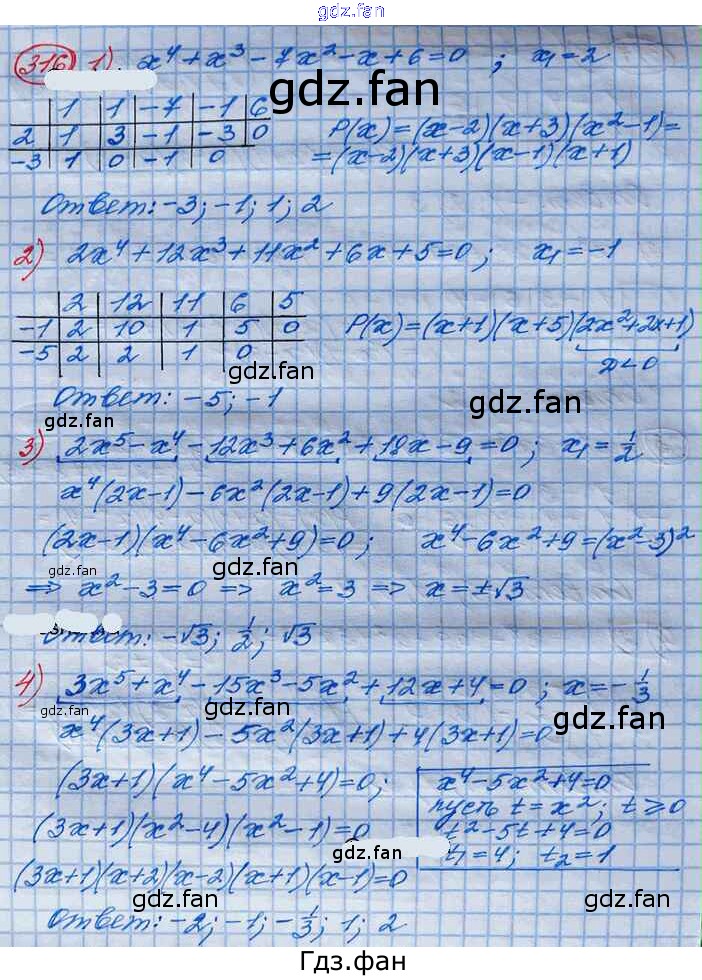 gdz.fan
316 1) x⁴ + x³ - 7x² - x + 6 = 0 ; x₁ = 2
gdz.fan
1 1 -7 -1 6
2 1 3 -1 -3 0
-3 1 0 -1 0
P(x) = (x-2)(x+3)(x²-1) =
= (x-2)(x+3)(x-1)(x+1)
Ответ: -3; -1; 1; 2
2) 2x⁴ + 12x³ + 11x² + 6x + 5 = 0 ; x₁ = -1
2 12 11 6 5
-1 2 10 1 5 0
-5 2 2 1 0
P(x) = (x+1)(x+5)(2x²+2x+1)
D < 0
gdz.fan
Ответ: -5; -1
gdz.fan
gdz.fan
3) 2x⁵ - x⁴ - 12x³ + 6x² + 18x - 9 = 0 ; x₁ = 1/2
x⁴(2x-1) - 6x²(2x-1) + 9(2x-1) = 0
(2x-1)(x⁴ - 6x² + 9) = 0 ; x⁴ - 6x² + 9 = (x²-3)²
gdz.fan
gdz.fan
⇒ x² - 3 = 0 ⇒ x² = 3 ⇒ x = ±√3
Ответ: -√3; 1/2; √3
4) 3x⁵ + x⁴ - 15x³ - 5x² + 12x + 4 = 0 ; x = -1/3
gdz.fan
gdz.fan
gdz.fan
x⁴(3x+1) - 5x²(3x+1) + 4(3x+1) = 0
(3x+1)(x⁴ - 5x² + 4) = 0;
x⁴ - 5x² + 4 = 0
пусть t = x²; t ⩾ 0
t² - 5t + 4 = 0
t₁ = 4; t₂ = 1
(3x+1)(x²-4)(x²-1) = 0
gdz.fan
(3x+1)(x+2)(x-2)(x+1)(x-1) = 0
gdz.fan
Ответ: -2; -1; -1/3; 1; 2
gdz.fan
Гдз.фан